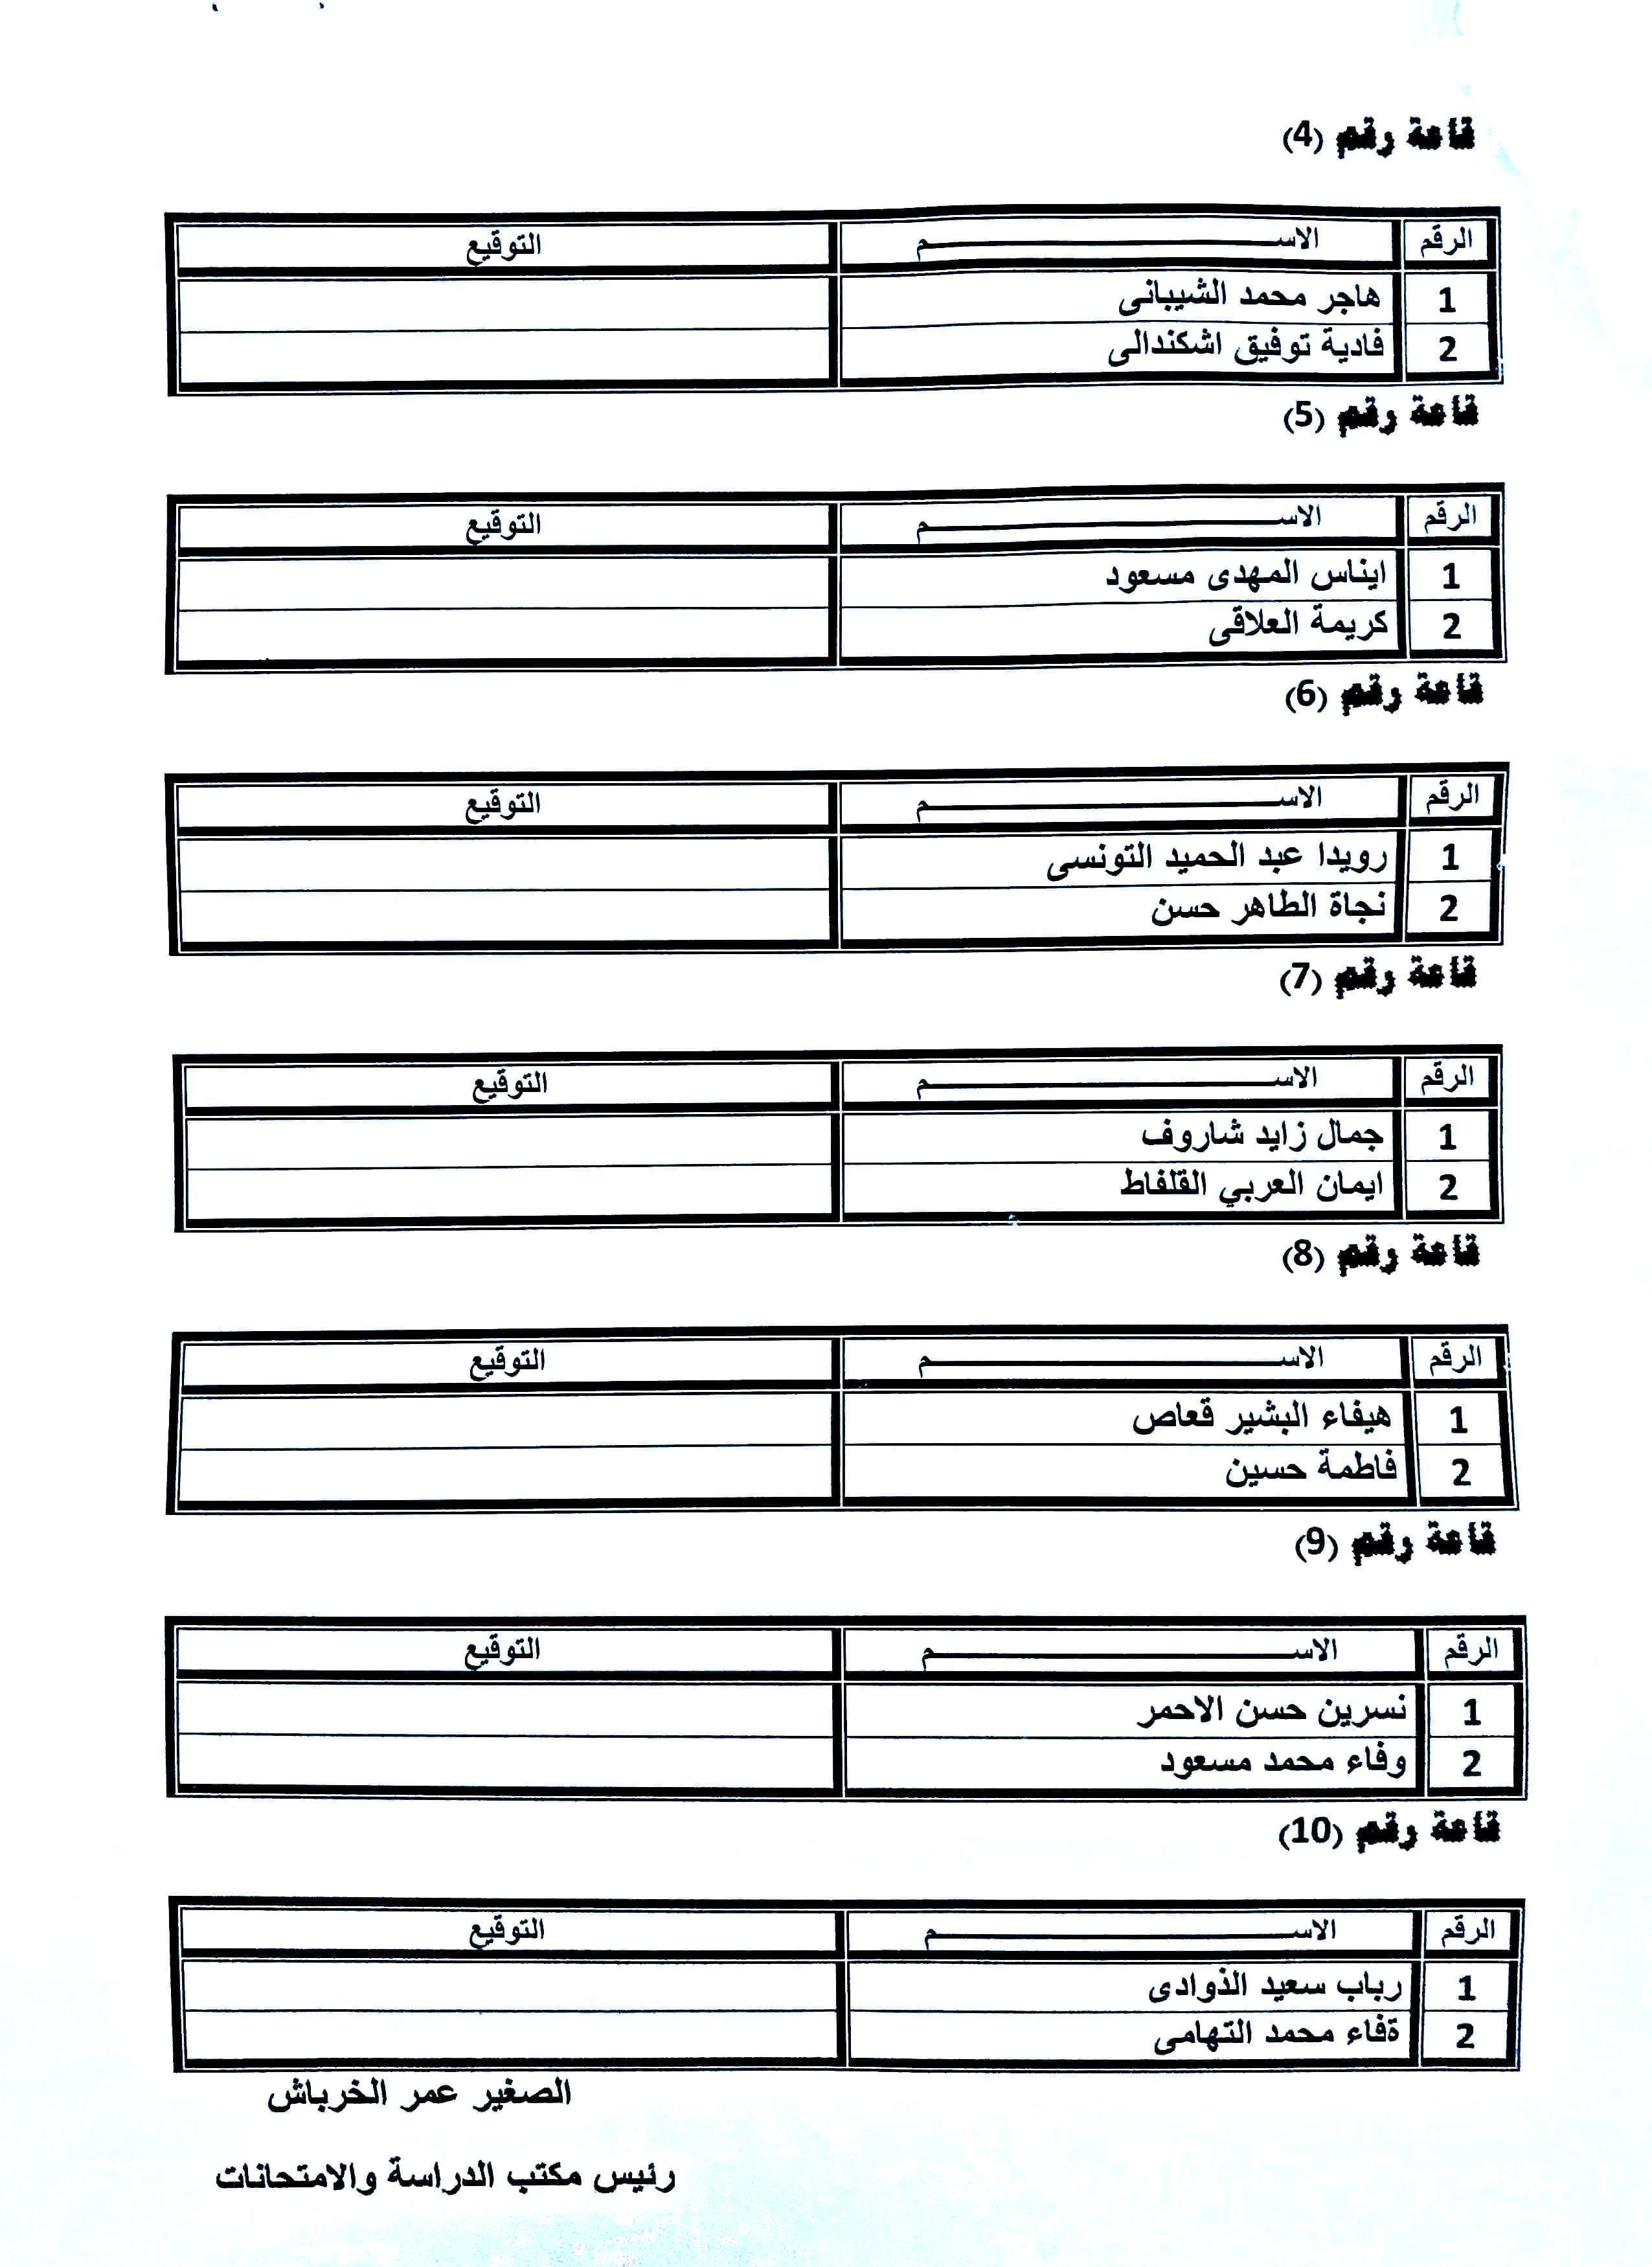 قاعة رقم (4)
الرقم الاســـــــــــــــــــــم التوقيع
1 هاجر محمد الشيبانى
2 فادية توفيق اشكندالى
قاعة رقم (5)
الرقم الاســـــــــــــــــــــم التوقيع
1 ايناس المهدى مسعود
2 كريمة العلاقى
قاعة رقم (6)
الرقم الاســـــــــــــــــــــم التوقيع
1 رويدا عبد الحميد التونسى
2 نجاة الطاهر حسن
قاعة رقم (7)
الرقم الاســـــــــــــــــــــم التوقيع
1 جمال زايد شاروف
2 ايمان العربي القلفاط
قاعة رقم (8)
الرقم الاســـــــــــــــــــــم التوقيع
1 هيفاء البشير قعاص
2 فاطمة حسين
قاعة رقم (9)
الرقم الاســـــــــــــــــــــم التوقيع
1 نسرين حسن الاحمر
2 وفاء محمد مسعود
قاعة رقم (10)
الرقم الاســـــــــــــــــــــم التوقيع
1 رباب سعيد الذوادى
2 ةفاء محمد التهامى
الصغير عمر الخرباش
رئيس مكتب الدراسة والامتحانات